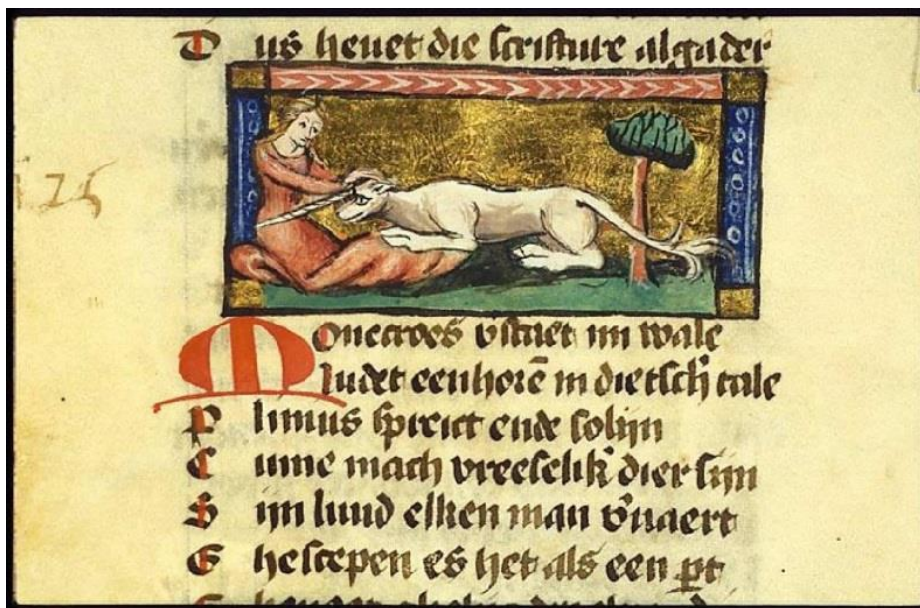 Dus heuet die scrifture algader
126
Monocroes v̄staet mi wale
Ludet eenhorē in dietsch̄ tale
Plinius spreict ende solijn
Cume mach vreeselik̄ dier sijn
Sijn luud elken man v̄vaert
Ghescepen es het als een p̄t